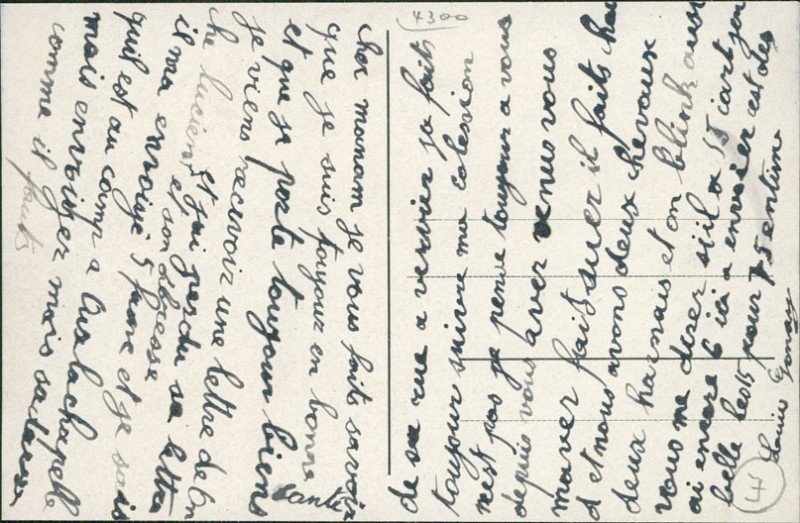 cher manam je vous fait savoir
que je suis toujour en bonne
santer
et que je porte toujour biens
je viens recevoir une lettre de On
che lucient et jai perdu sa lettre
et son adresse
il ma envoiyé 5 franc et je sais
quil est au camp a lachapelle
mais envoiyer mois sadresse
comme il fauts
de sa rue a vervier sa faits
toujour suivre ma colession
nest pas je pense toujour a vous
depuis vous aver venus vous
maver fait suer il faits hau
d et nous avons deux chevaux
deux harnais et on blink aussi
vous me direz siil a 15 cart jen
ai encore 6 ici a envoiier est des
belle les 15 pour 75 entime
Louis
4300
4